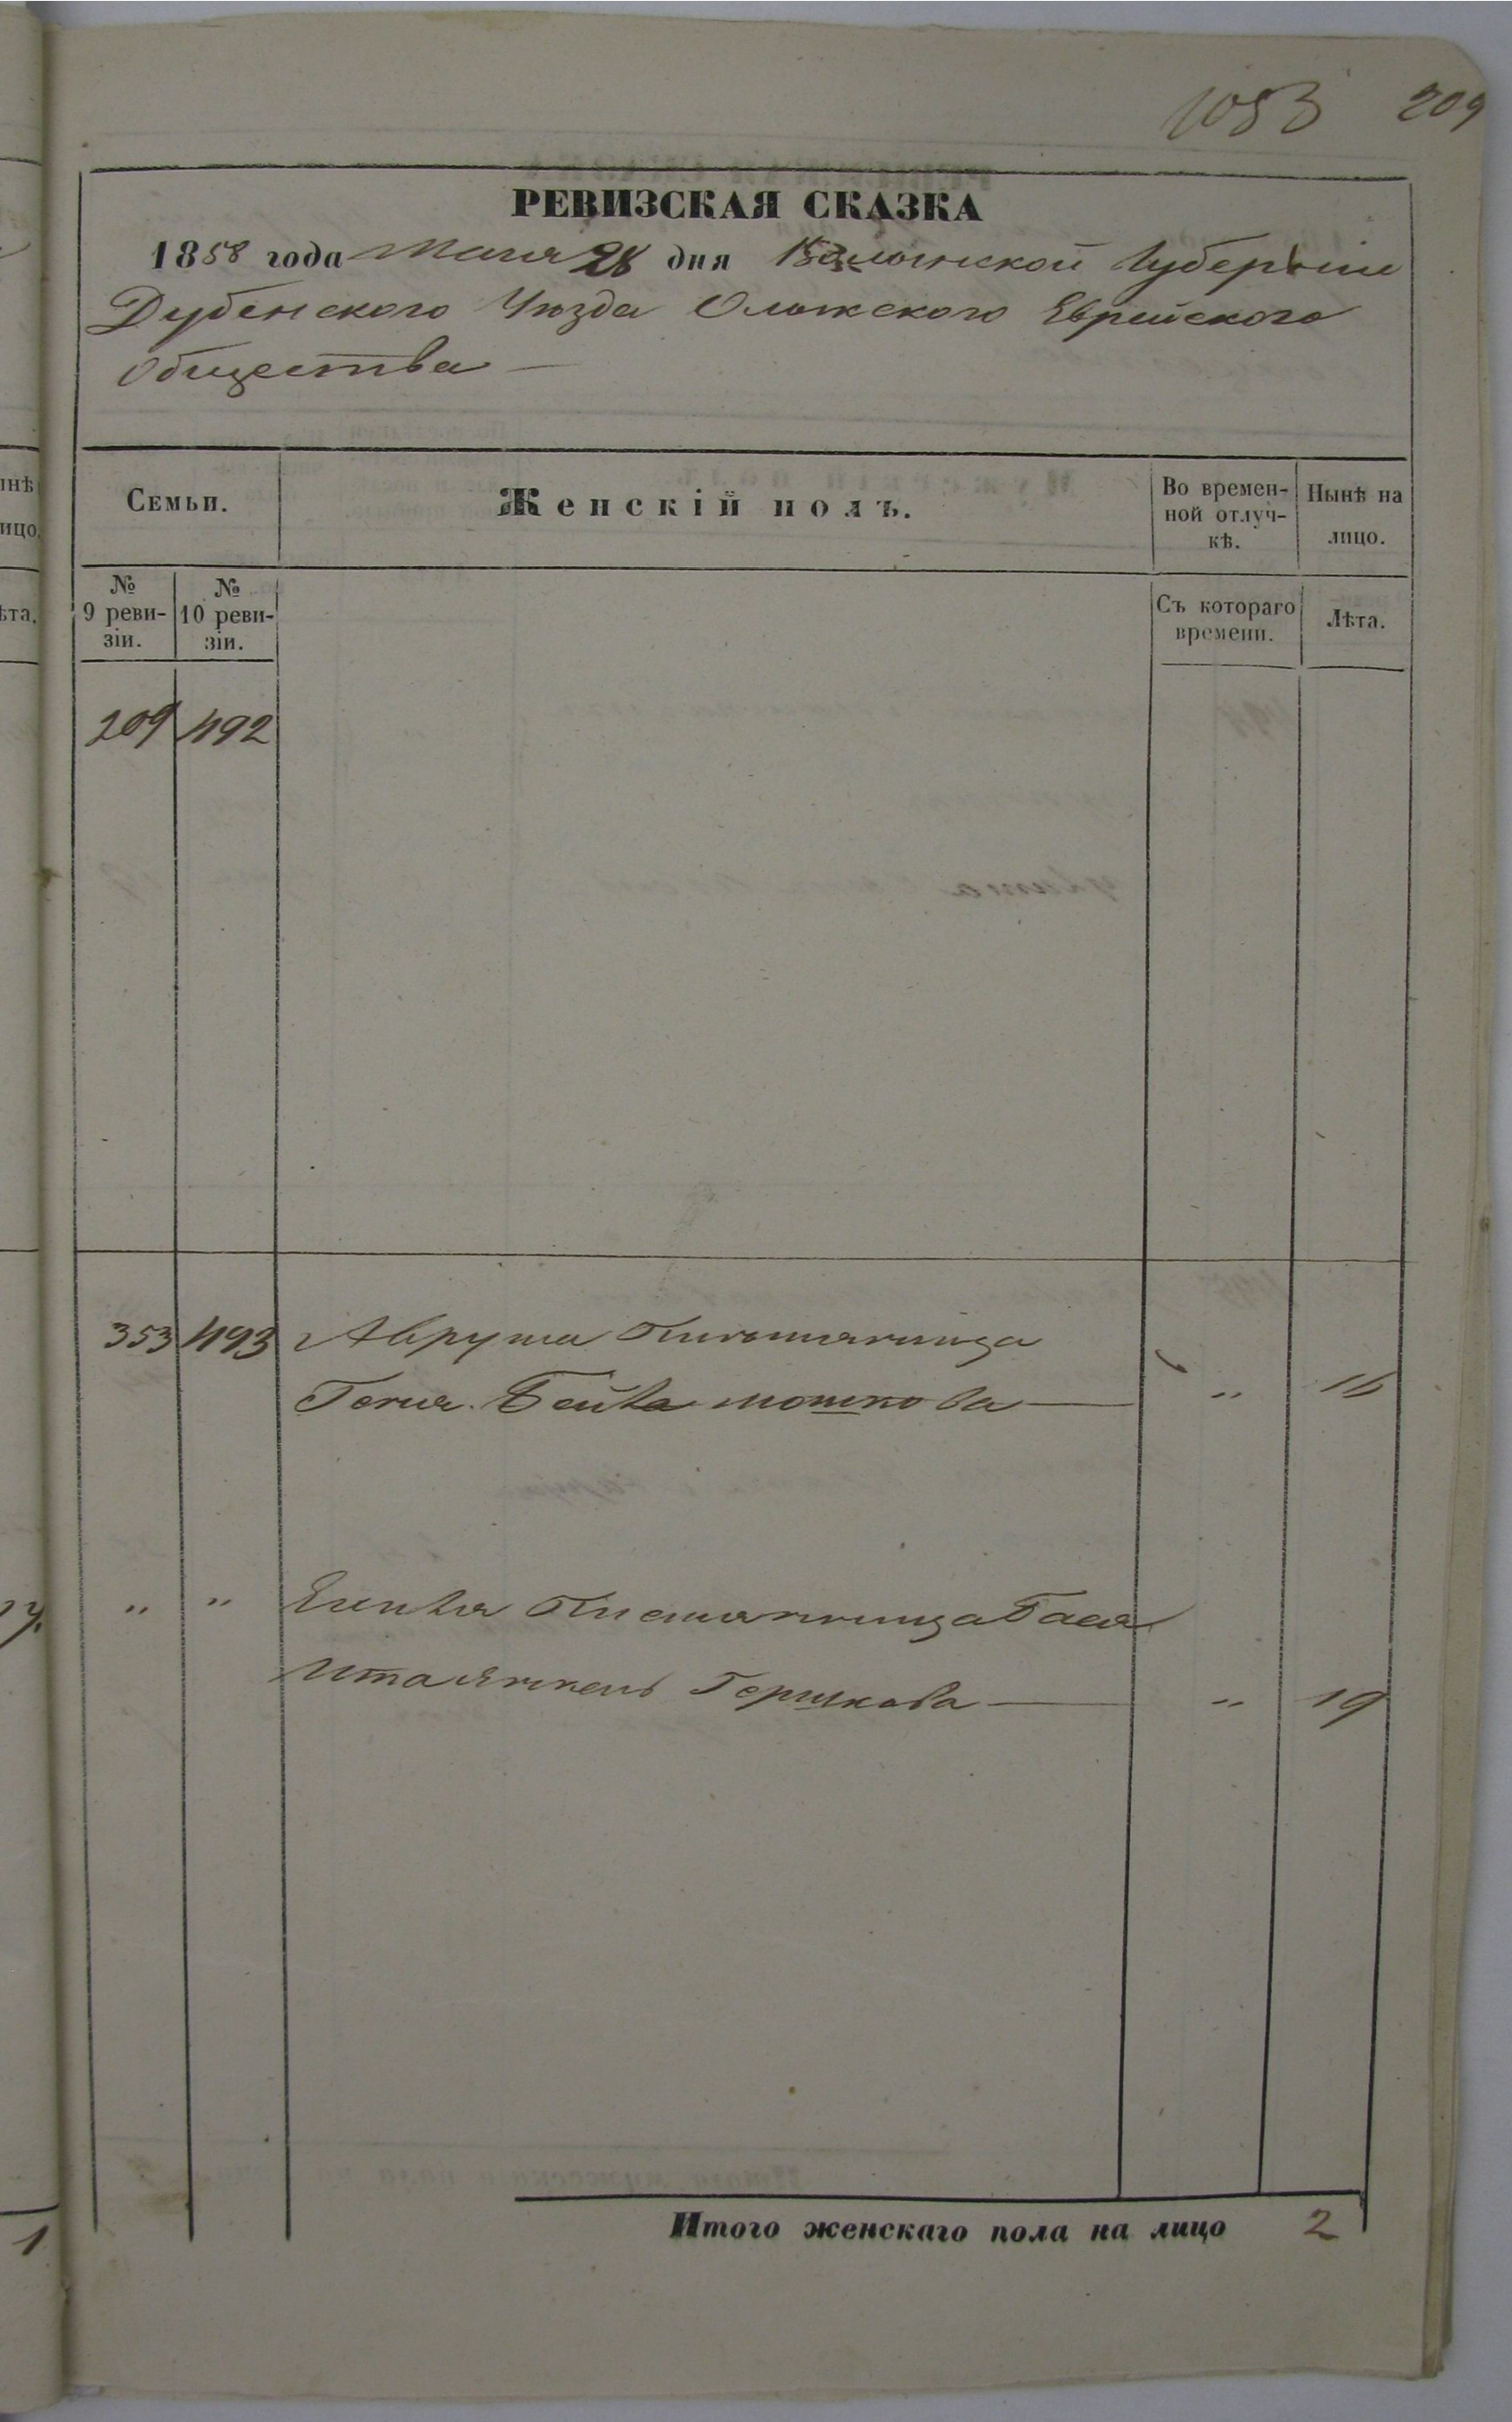 1083 209
РЕВИЗСКАЯ СКАЗКА
1858 года Мая 28 дня Волынской Губерніи
Дубенского Уѣзда Олыкского Еврейского
Общества —
Семьи.
Женскій полъ.
Во времен-
ной отлуч-
кѣ.
Нынѣ на
лицо.
№
9 реви-
зіи.
№
10 реви-
зіи.
Съ котораго
времени.
Лѣта.
209 492
353 493 Авруша
Бейла Мошкова — " 16
" " Гася
Гершкова — " 19
Итого женскаго пола на лицо 2